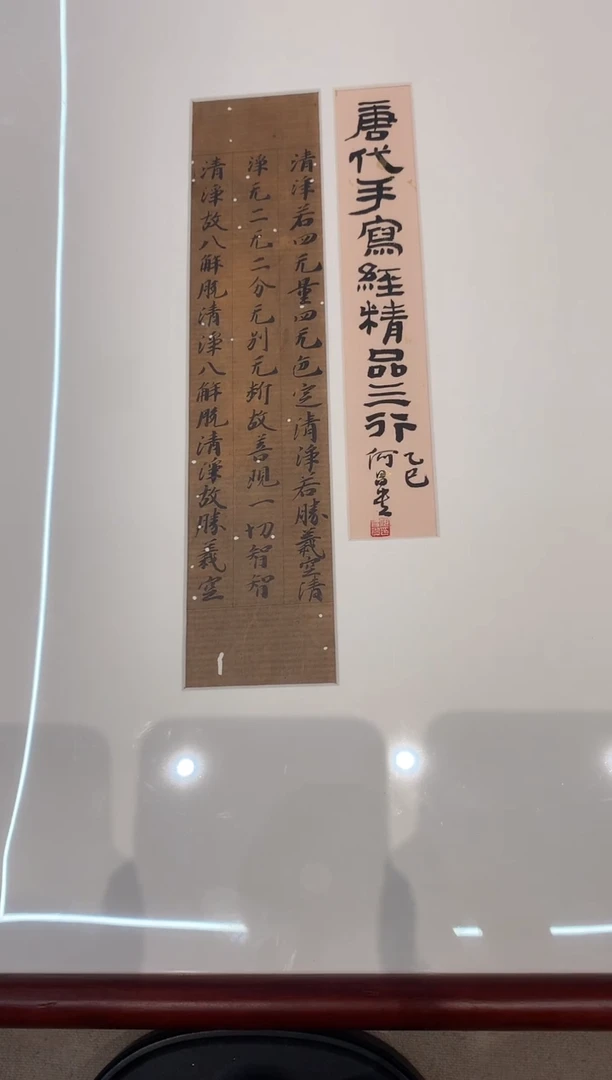 唐代手寫經精品三行
乙巳
何昌
清淨若四无量四无色定清淨若勝義空清
淨无二无二分无別无斷故善現一切智智
清淨故八解脫清淨八解脫清淨故勝義空